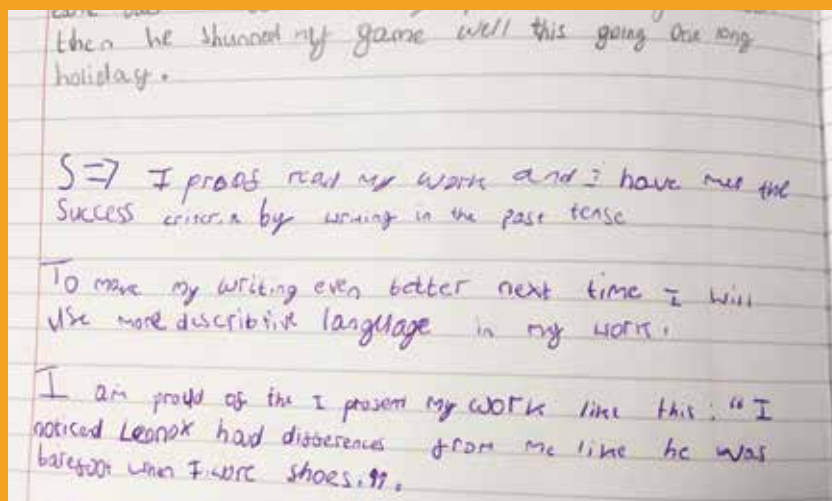 then he shunned my game well this going One long
holiday.
S=> I proof read my work and i have met the
Success criteria by writing in the past tense
To make my writing even better next time I will
use more describtive language in my work.
I am proud of the I present my work like this: "I
noticed Leonox had differences from me like he was
barefoot when I wore shoes.".